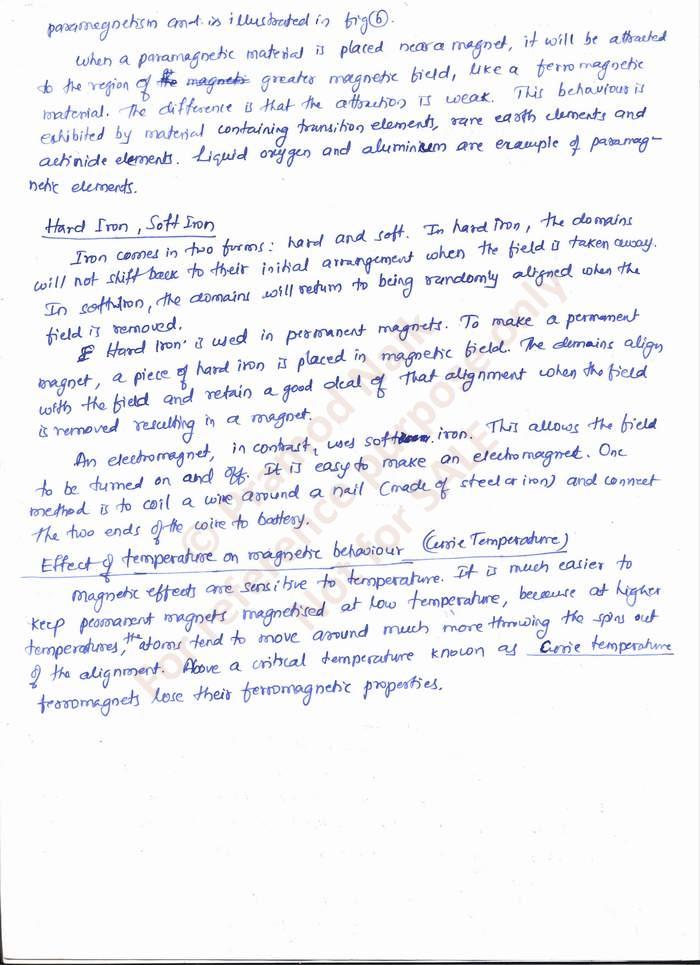 paramegnetism and is illustrated in fig⑥.
When a paramagnetic material is placed near a magnet, it will be attracted
to the region of the magnetic greater magnetic field, like a ferromagnetic
material. The difference is that the attraction is weak. This behaviour is
exhibited by material containing transition elements, rare earth elements and
actinide elements. Liquid oxygen and aluminium are example of paramag-
netic elements.
Hard Iron, Soft Iron
Iron comes in two forms: hard and soft. In hard iron, the domains
will not shift back to their initial arrangement when the field is taken away.
In soft iron, the domains will return to being randomly aligned when the
field is removed.
Hard Iron is used in permanent magnets. To make a permanent
magnet, a piece of hard iron is placed in magnetic field. The domains align
with the field and retain a good deal of that alignment when the field
is removed resulting in a magnet.
An electromagnet, in contrast, uses soft iron. This allows the field
to be turned on and off. It is easy to make an electromagnet. One
method is to coil a wire around a nail (made of steel or iron) and connect
the two ends of the wire to battery.
Effect of temperature on magnetic behaviour (Currie Temperature)
Magnetic effects are sensitive to temperature. It is much easier to
keep permanent magnets magnetised at low temperature, because at higher
temperatures, the atoms tend to move around much more throwing the spins out
of the alignment. Above a critical temperature known as Currie temperature
ferromagnets lose their ferromagnetic properties.
© Pramod Naik
For reference purpose only
Not for SALE